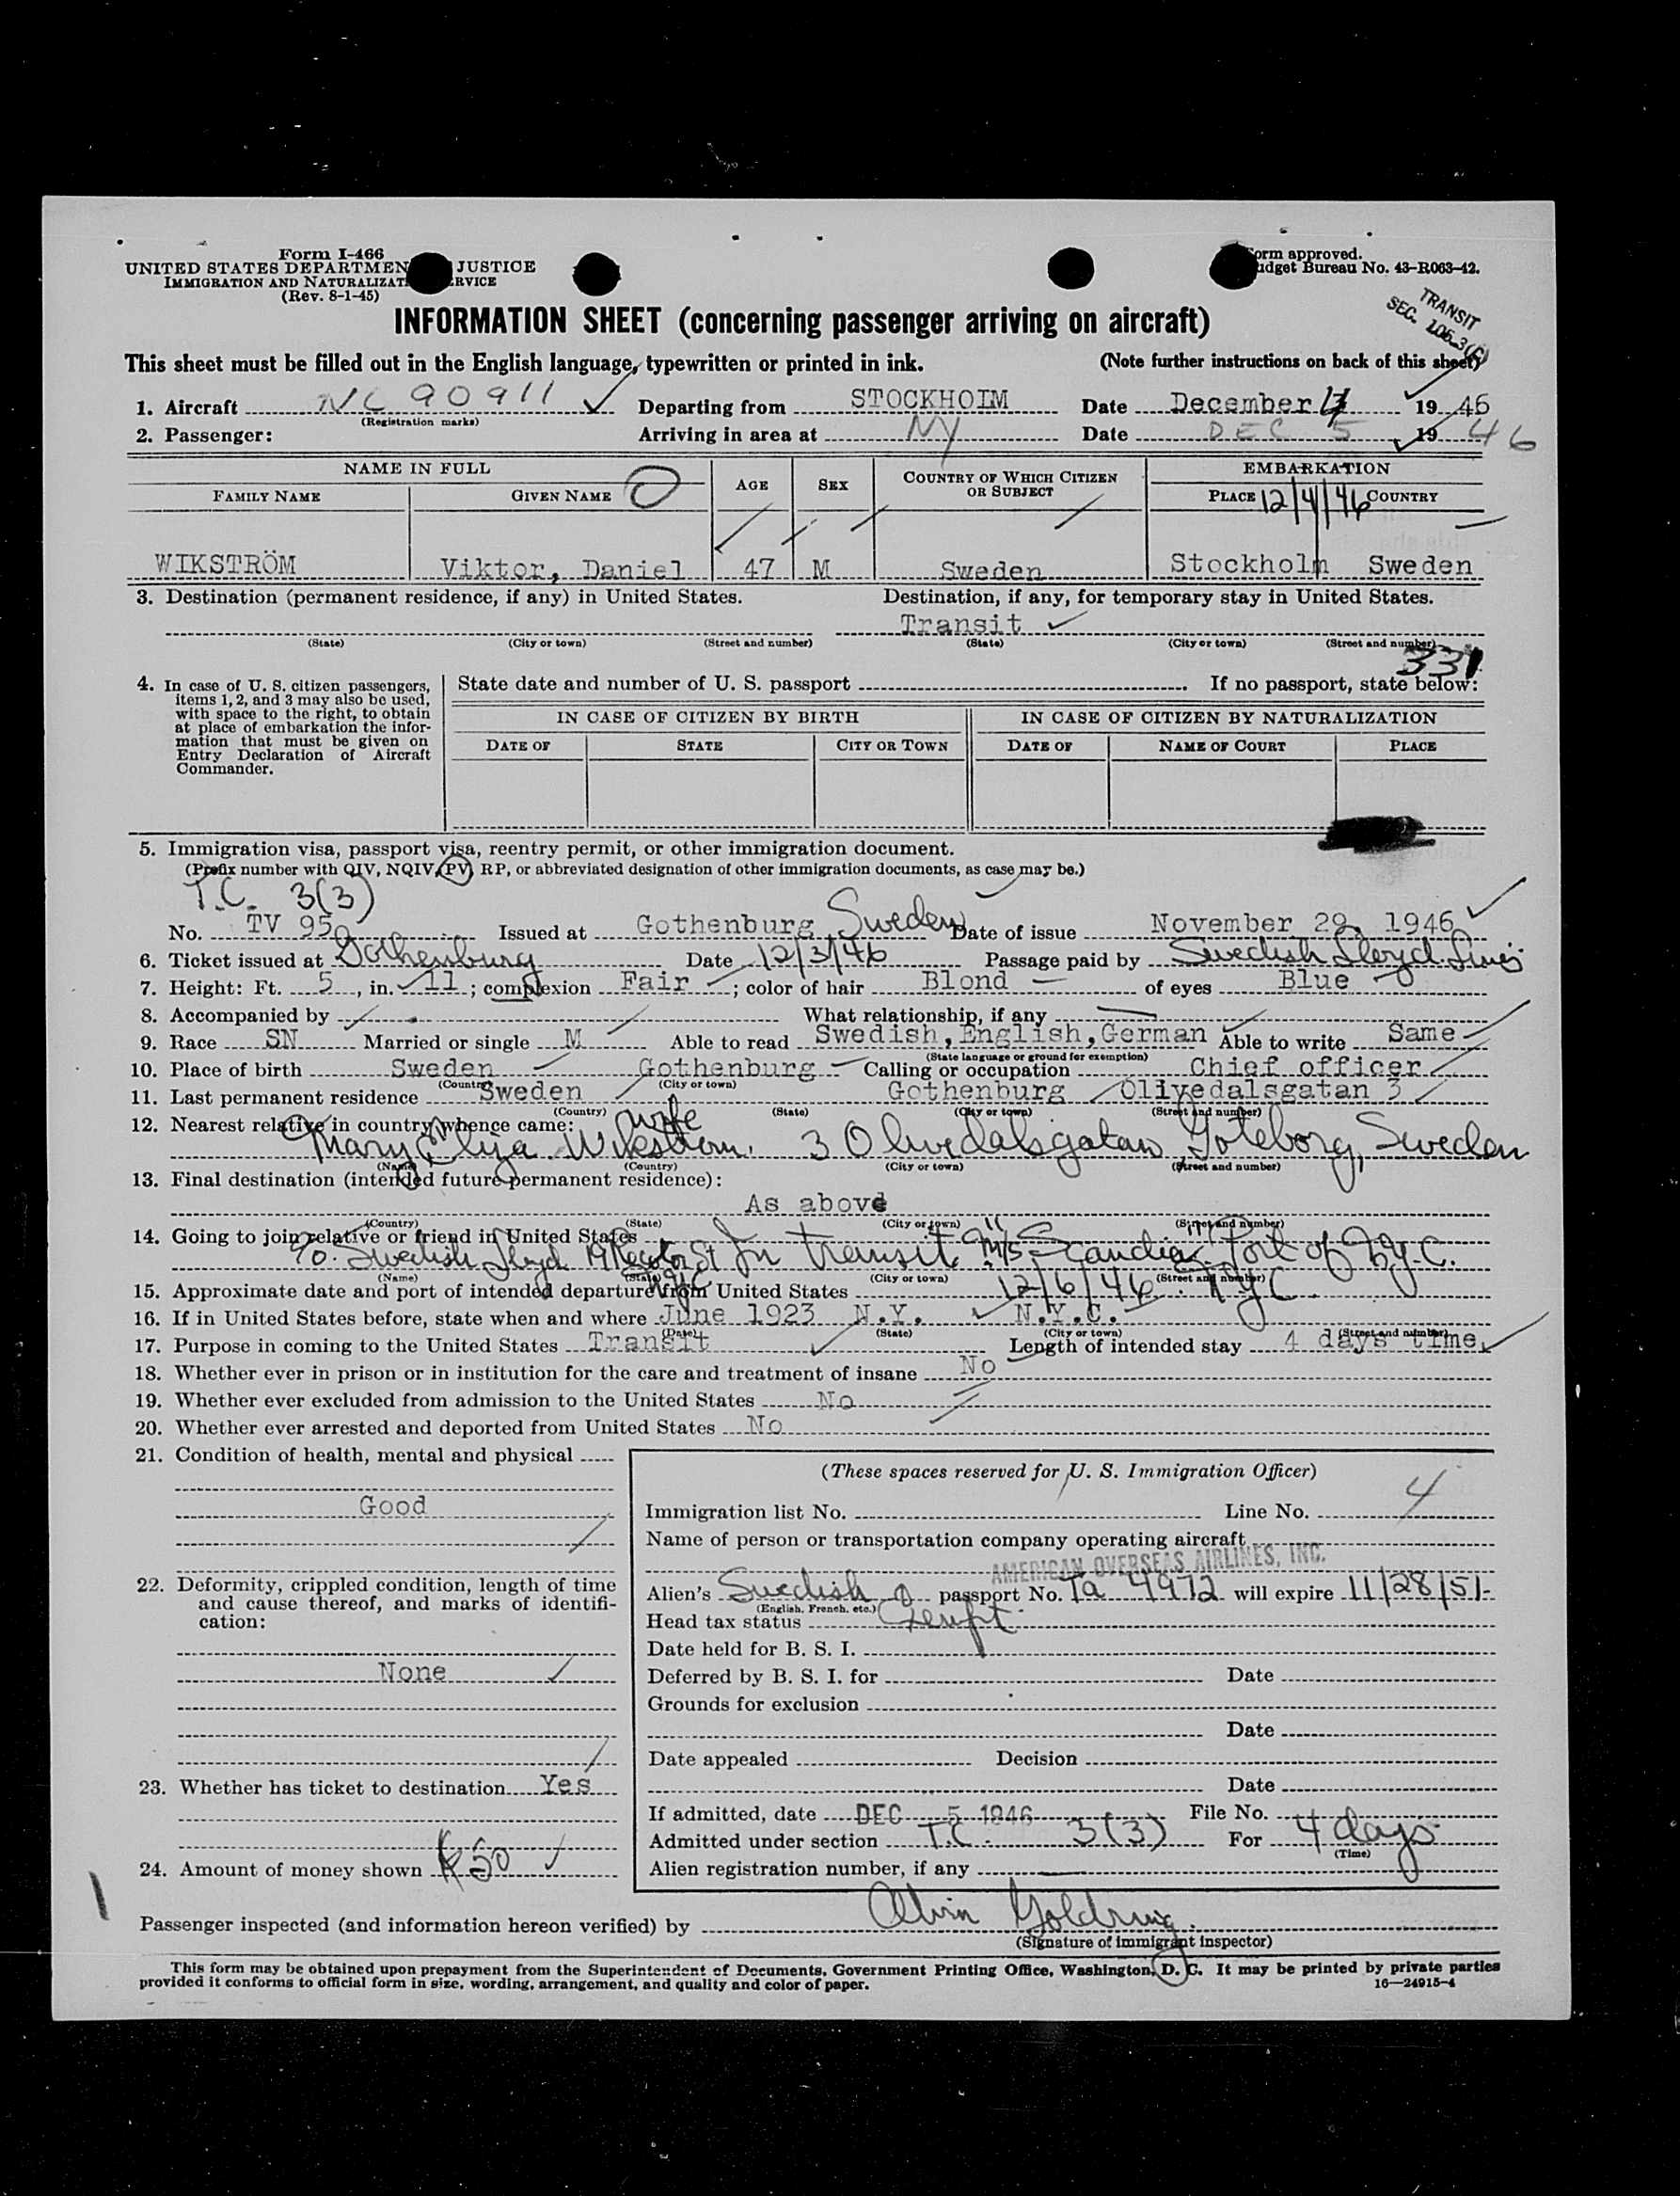 Form I-466
UNITED STATES DEPARTMEN JUSTICE
IMMIGRATION AND NATURALIZAT RVICE
(Rev. 8-1-45)
orm approved.
udget Bureau No. 43-R063-42.
TRANSIT
SEC.
INFORMATION SHEET (concerning passenger arriving on aircraft)
This sheet must be filled out in the English language, typewritten or printed in ink. (Note further instructions on back of this sheet)
1. Aircraft NC 90911 Departing from STOCKHOLM Date December 4 1946
(Registration marks)
2. Passenger: Arriving in area at NY Date DEC 5 19 46
NAME IN FULL AGE SEX COUNTRY OF WHICH CITIZEN OR SUBJECT EMBARKATION
FAMILY NAME GIVEN NAME PLACE 12/4/46 COUNTRY
WIKSTRÖM Viktor, Daniel 47 M Sweden Stockholm Sweden
3. Destination (permanent residence, if any) in United States. Destination, if any, for temporary stay in United States.
Transit
(State) (City or town) (Street and number) (State) (City or town) (Street and number)
331
4. In case of U. S. citizen passengers, items 1, 2, and 3 may also be used, with space to the right, to obtain at place of embarkation the information that must be given on Entry Declaration of Aircraft Commander.
State date and number of U. S. passport If no passport, state below:
IN CASE OF CITIZEN BY BIRTH IN CASE OF CITIZEN BY NATURALIZATION
DATE OF STATE CITY OR TOWN DATE OF NAME OF COURT PLACE
5. Immigration visa, passport visa, reentry permit, or other immigration document.
(Prefix number with QIV, NQIV, PV, RP, or abbreviated designation of other immigration documents, as case may be.)
T.C. 3(3)
No. TV 95 Issued at Gothenburg Sweden Date of issue November 29, 1946
6. Ticket issued at Gothenburg Date 12/3/46 Passage paid by Swedish Lloyd Lines
7. Height: Ft. 5, in. 11; complexion Fair; color of hair Blond of eyes Blue
8. Accompanied by What relationship, if any
9. Race SN Married or single M Able to read Swedish, English, German Able to write Same
(State language or ground for exemption)
10. Place of birth Sweden Gothenburg Calling or occupation Chief officer
(Country) (City or town)
11. Last permanent residence Sweden Gothenburg Olivedalsgatan 3
(Country) (State) (City or town) (Street and number)
12. Nearest relative in country whence came: wife
Mary Eliza Wikstrom. 3 Olivedalsgatan Goteborg, Sweden
(Name) (Country) (City or town) (Street and number)
13. Final destination (intended future permanent residence):
As above
(Country) (State) (City or town) (Street and number)
14. Going to join relative or friend in United States
Swedish Lloyd 19 Rector St In transit M/S Scandia Port of N.Y.C.
NYC
(Name) (State) (City or town) (Street and number)
15. Approximate date and port of intended departure from United States 12/6/46. NYC.
16. If in United States before, state when and where June 1923 N.Y. N.Y.C.
(Date) (State) (City or town) (Street and number)
17. Purpose in coming to the United States Transit Length of intended stay 4 days time
18. Whether ever in prison or in institution for the care and treatment of insane No
19. Whether ever excluded from admission to the United States No
20. Whether ever arrested and deported from United States No
21. Condition of health, mental and physical
Good
22. Deformity, crippled condition, length of time and cause thereof, and marks of identification:
None
23. Whether has ticket to destination Yes
24. Amount of money shown K 50
(These spaces reserved for U. S. Immigration Officer)
Immigration list No. Line No. 4
Name of person or transportation company operating aircraft
AMERICAN OVERSEAS AIRLINES, INC.
Alien's Swedish passport No. Ta 4972 will expire 11/28/51
(English, French, etc.)
Head tax status Exempt
Date held for B. S. I.
Deferred by B. S. I. for Date
Grounds for exclusion
Date
Date appealed Decision
Date
If admitted, date DEC 5 1946 File No.
Admitted under section T.C. 3(3) For 4 days
(Time)
Alien registration number, if any
Passenger inspected (and information hereon verified) by Alvin Goldring
(Signature of immigrant inspector)
This form may be obtained upon prepayment from the Superintendent of Documents, Government Printing Office, Washington, D. C. It may be printed by private parties
provided it conforms to official form in size, wording, arrangement, and quality and color of paper. 16—24915-4